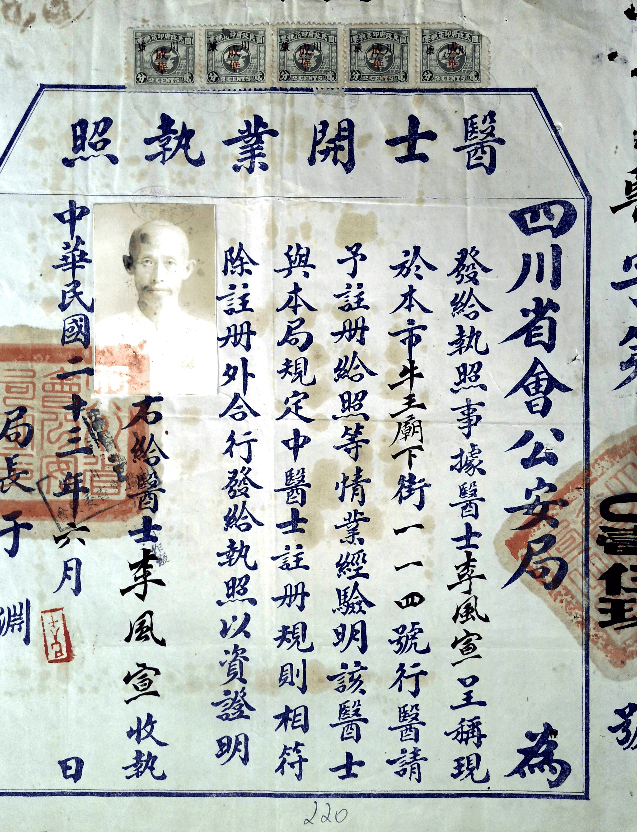 醫士開業執照
四川省會公安局 為
發給執照事據醫士李風宣呈稱現
於本市牛王廟下街一一四號行醫請
予註册給照等情業經驗明該醫士
與本局規定中醫士註册規則相符
除註册外合行發給執照以資證明
右給醫士李風宣收執
中華民國二十三年六月 日
局長于淵
號
220